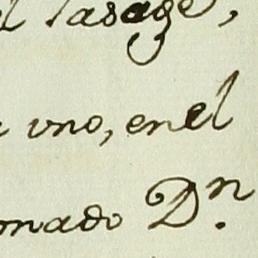 el Pasage,
uno, en el
onado Dn.